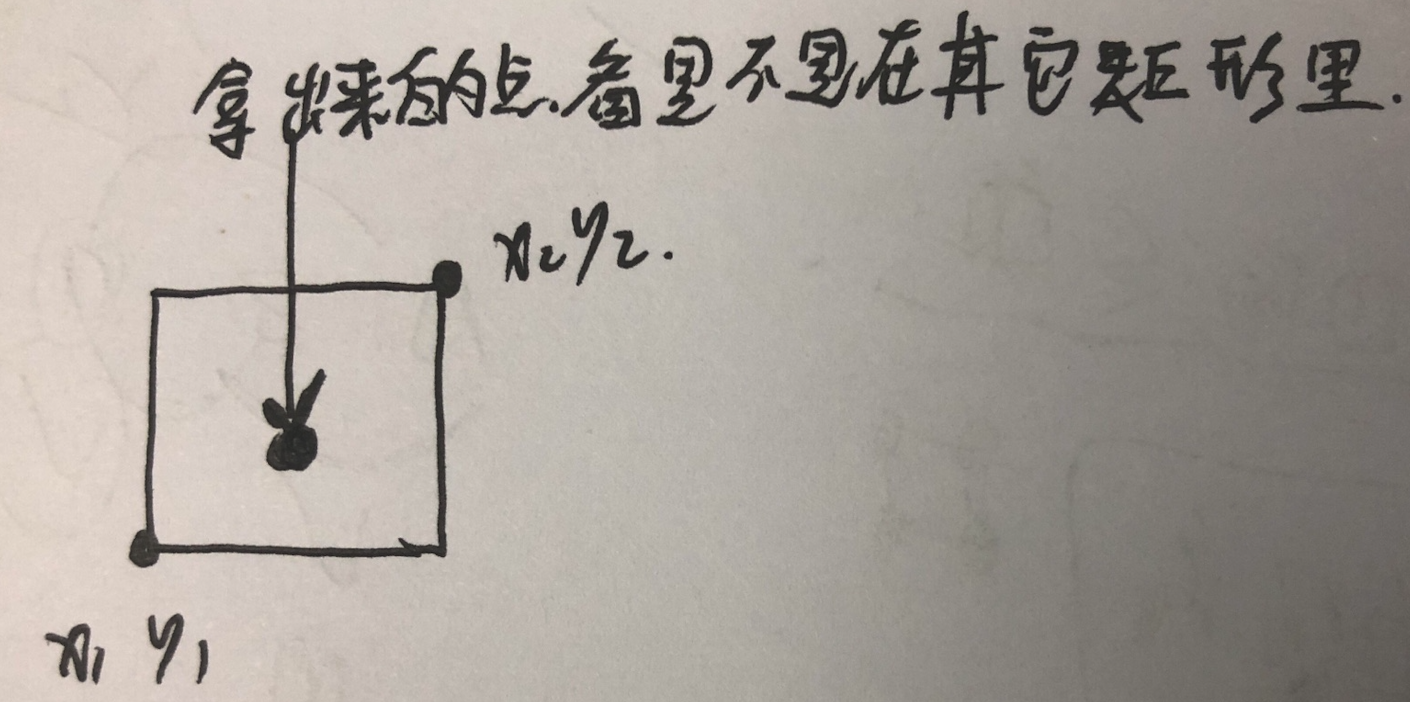 拿出来的点、看是不是在其它矩形里.
x₂y₂.
x₁ y₁